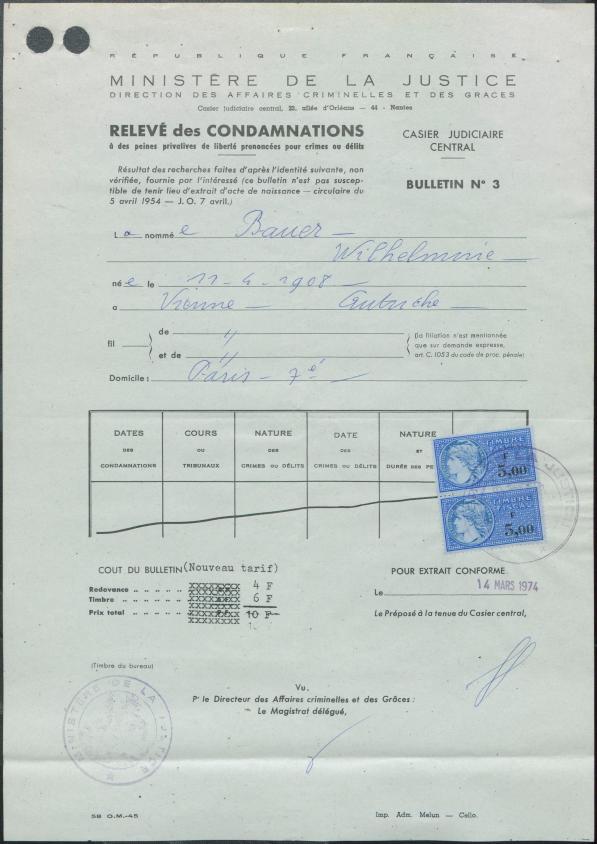 RÉPUBLIQUE FRANÇAISE
MINISTÈRE DE LA JUSTICE
DIRECTION DES AFFAIRES CRIMINELLES ET DES GRACES
Casier judiciaire central, 23, allée d'Orléans — 44 - Nantes
RELEVÉ des CONDAMNATIONS
à des peines privatives de liberté prononcées pour crimes ou délits
CASIER JUDICIAIRE
CENTRAL
Résultat des recherches faites d'après l'identité suivante, non
vérifiée, fournie par l'intéressé (ce bulletin n'est pas suscep-
tible de tenir lieu d'extrait d'acte de naissance — circulaire du
5 avril 1954 — J.O. 7 avril.)
BULLETIN N° 3
La nommée Bauer —
Wilhelmine —
née le 11-4-1908 —
a Vienne — Autriche —
fil
de "
et de "
(la filiation n'est mentionnée
que sur demande expresse,
art. C. 1053 du code de proc. pénale)
Domicile : Paris - 7è —
DATES
DES
CONDAMNATIONS
COURS
OU
TRIBUNAUX
NATURE
DES
CRIMES OU DÉLITS
DATE
DES
CRIMES OU DÉLITS
NATURE
ET
DURÉE DES PE
TIMBRE
FISCAL
F
5,00
TIMBRE
FISCAL
F
5,00
COUT DU BULLETIN (Nouveau tarif)
Redevance 4 F
Timbre 6 F
Prix total 10 F
POUR EXTRAIT CONFORME
Le 14 MARS 1974
Le Préposé à la tenue du Casier central,
(Timbre du bureau)
MINISTÈRE DE LA JUSTICE
Vu.
P' le Directeur des Affaires criminelles et des Grâces :
Le Magistrat délégué,
58 O.M.-45
Imp. Adm. Melun — Cello.